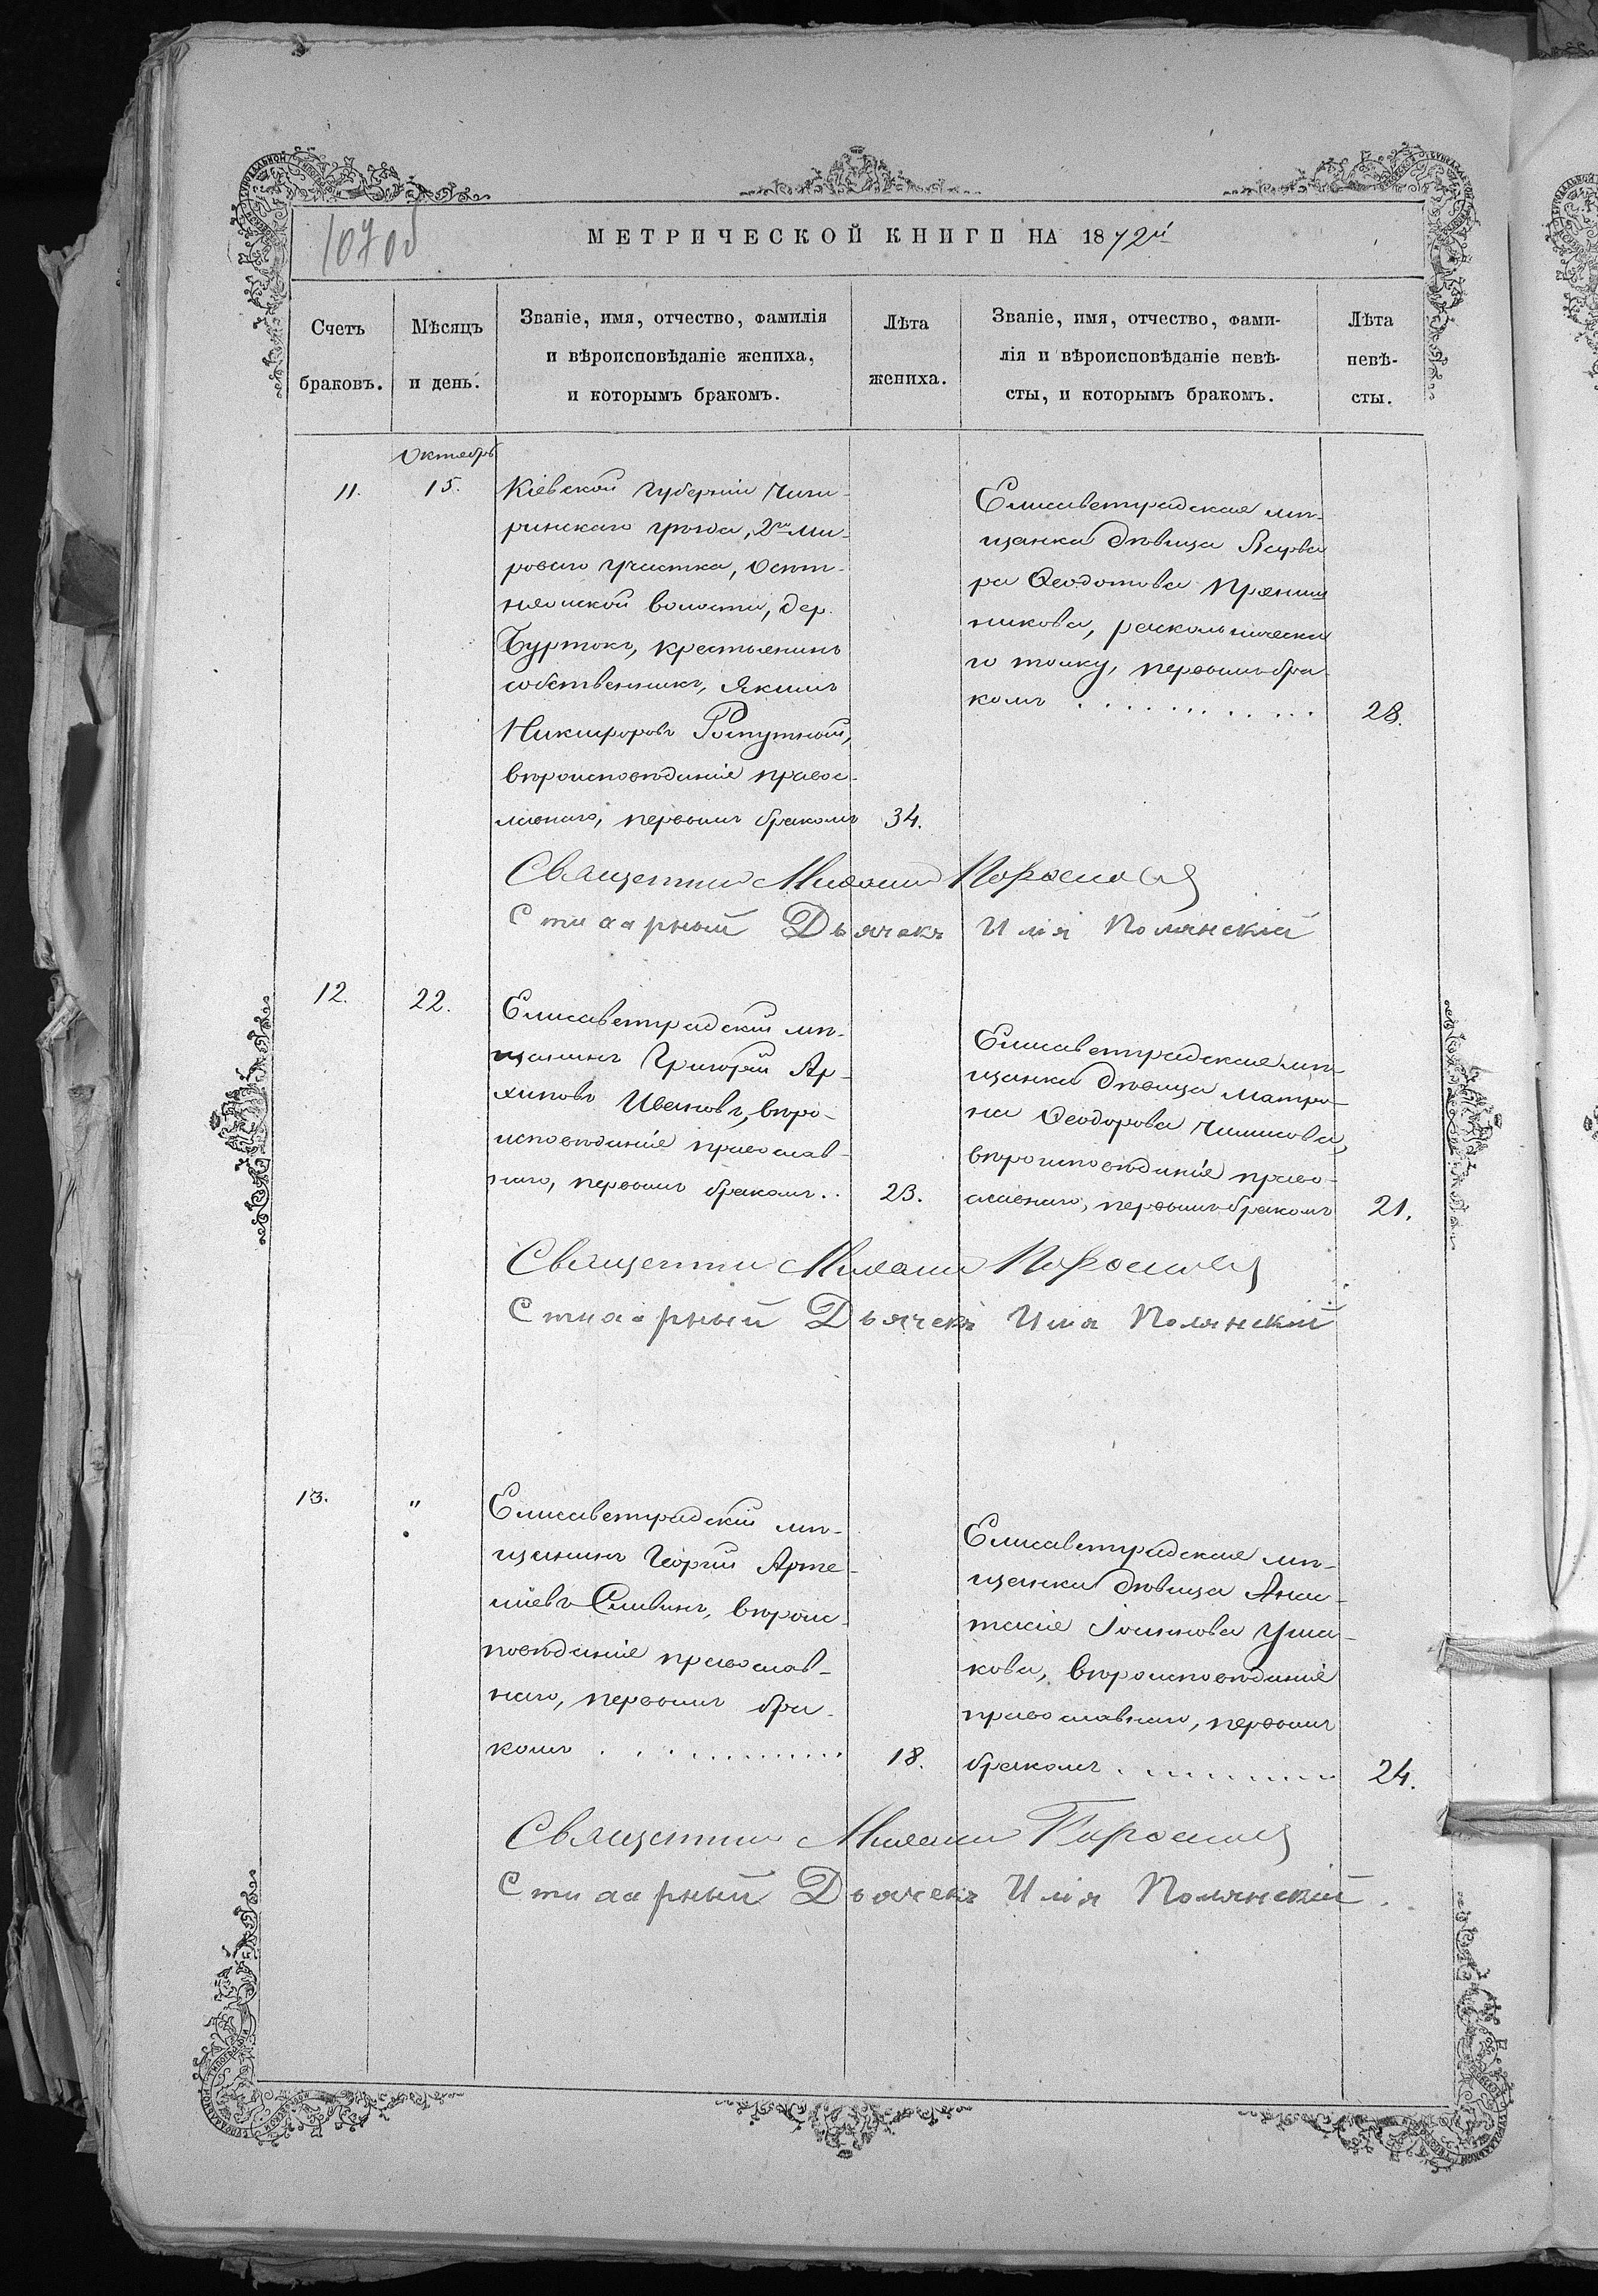 107об
МЕТРИЧЕСКОЙ КНИГИ НА 1872й
Счетъ
браковъ.
Мѣсяцъ
и день.
Званіе, имя, отчество, фамилія
и вѣроисповѣданіе жениха,
и которымъ бракомъ.
Лѣта
жениха.
Званіе, имя, отчество, фами-
лія и вѣроисповѣданіе невѣ-
сты, и которымъ бракомъ.
Лѣта
невѣ-
сты.
Октябрь
11.
15.
Кіевской губерніи Чиги-
ринскаго уѣзда, 2го ми-
роваго участка, Осит-
няжской волости, дер.
Буртокъ, крестьянинъ
собственникъ, Якимъ
Никифоровъ
вѣроисповѣданія правос-
лавнаго, первымъ бракомъ
34.
Елисаветградская мѣ-
щанка дѣвица Варва
ра Ѳеодотова Пряниш
никова, раскольническа
го толку, первымъ бра
комъ . . . . . . . . . . .
28.
Священникъ
Стихарный Дьячекъ Илія Полянскій
12.
22.
Елисаветградскій мѣ-
щанинъ Григорій Ар-
хиповъ Ивановъ, вѣро-
исповѣданія православ-
наго, первымъ бракомъ . .
23.
Елисаветградская мѣ-
щанка дѣвица Матро-
на Ѳеодорова
вѣроисповѣданія право-
славнаго, первымъ бракомъ
21.
Священникъ
Стихарный Дьячекъ Илія Полянскій
13.
"
Елисаветградскій мѣ-
щанинъ Георгій Арте-
міевъ Сливинъ, вѣроис-
повѣданія православ-
наго, первымъ бра-
комъ . . . . . . . . . . . .
18.
Елисаветградская мѣ-
щанка дѣвица Анас-
тасія Іоаннова Уша-
кова, вѣроисповѣданія
православнаго, первымъ
бракомъ . . . . . . . . . .
24.
Священникъ
Стихарный Дьячекъ Илія Полянскій.